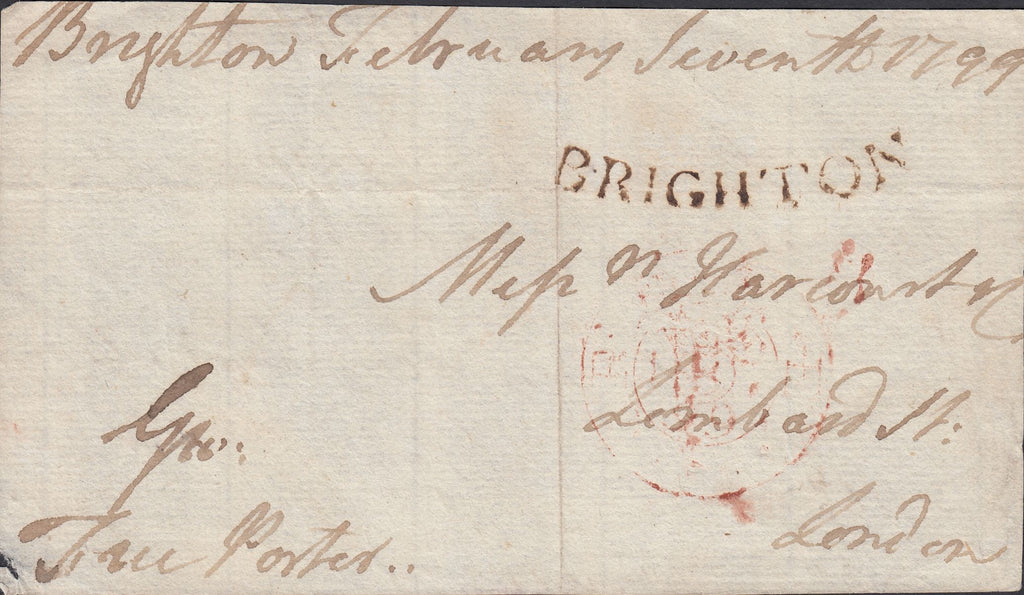 Brighton February Seventh 1799
BRIGHTON
Messrs Harcourt &C
Lombard St:
London
Geo:
Free Porter..